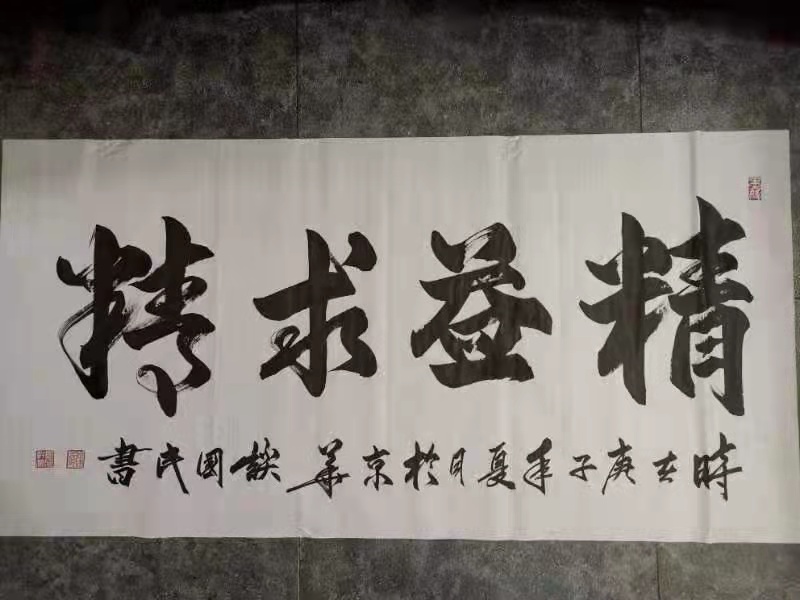 精益求精
時在庚子年夏月於京華談國民書